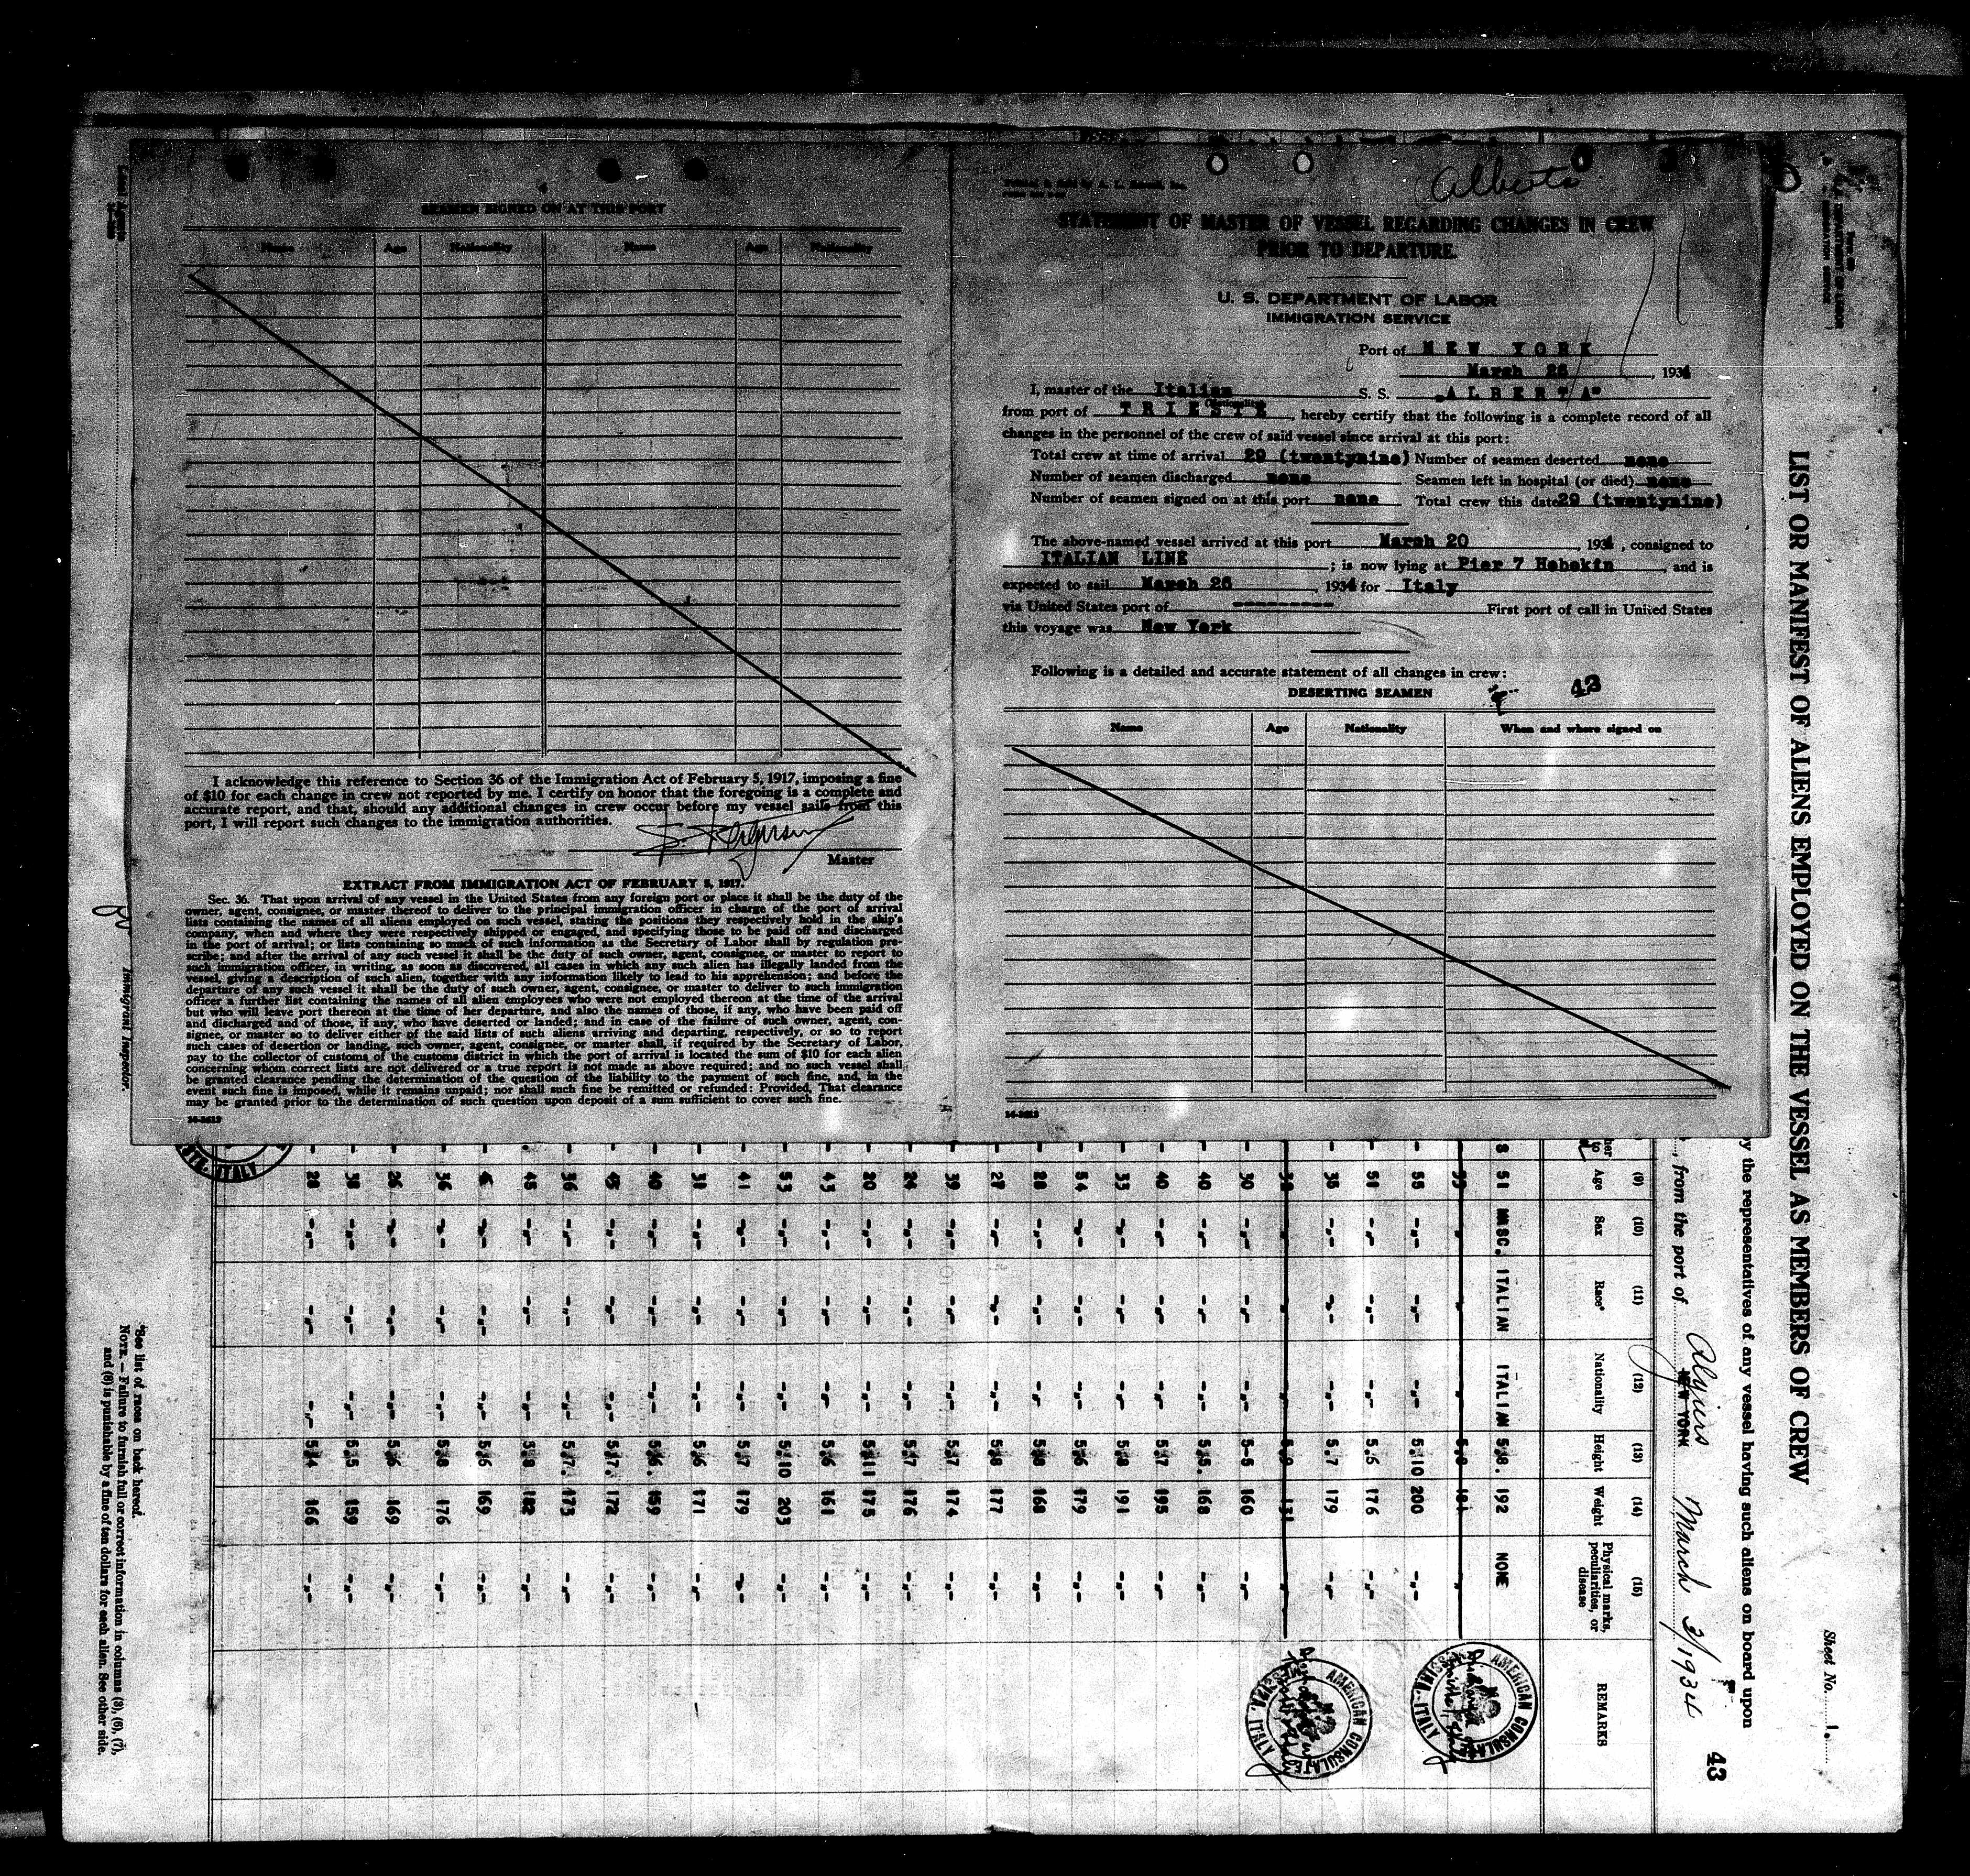 4
SEAMEN SIGNED ON AT THIS PORT
Name Age Nationality Name Age Nationality
I acknowledge this reference to Section 36 of the Immigration Act of February 5, 1917, imposing a fine
of $10 for each change in crew not reported by me. I certify on honor that the foregoing is a complete and
accurate report, and that, should any additional changes in crew occur before my vessel sails from this
port, I will report such changes to the immigration authorities.
Master
EXTRACT FROM IMMIGRATION ACT OF FEBRUARY 5, 1917.
Sec. 36. That upon arrival of any vessel in the United States from any foreign port or place it shall be the duty of the
owner, agent, consignee, or master thereof to deliver to the principal immigration officer in charge of the port of arrival
lists containing the names of all aliens employed on such vessel, stating the positions they respectively hold in the ship's
company, when and where they were respectively shipped or engaged, and specifying those to be paid off and discharged
in the port of arrival; or lists containing so much of such information as the Secretary of Labor shall by regulation pre-
scribe; and after the arrival of any such vessel it shall be the duty of such owner, agent, consignee, or master to report to
such immigration officer, in writing, as soon as discovered, all cases in which any such alien has illegally landed from the
vessel, giving a description of such alien, together with any information likely to lead to his apprehension; and before the
departure of any such vessel it shall be the duty of such owner, agent, consignee, or master to deliver to such immigration
officer a further list containing the names of all alien employees who were not employed thereon at the time of the arrival
but who will leave port thereon at the time of her departure, and also the names of those, if any, who have been paid off
and discharged and of those, if any, who have deserted or landed; and in case of the failure of such owner, agent, con-
signee, or master so to deliver either of the said lists of such aliens arriving and departing, respectively, or so to report
such cases of desertion or landing, such owner, agent, consignee, or master shall, if required by the Secretary of Labor,
pay to the collector of customs of the customs district in which the port of arrival is located the sum of $10 for each alien
concerning whom correct lists are not delivered or a true report is not made as above required; and no such vessel shall
be granted clearance pending the determination of the question of the liability to the payment of such fine, and, in the
event such fine is imposed, while it remains unpaid; nor shall such fine be remitted or refunded: Provided, That clearance
may be granted prior to the determination of such question upon deposit of a sum sufficient to cover such fine.
14-2613
Alberta
STATEMENT OF MASTER OF VESSEL REGARDING CHANGES IN CREW
PRIOR TO DEPARTURE.
U. S. DEPARTMENT OF LABOR
IMMIGRATION SERVICE
Port of NEW YORK
March 26, 1934
I, master of the Italian S. S. "ALBERTA"
(Nationality)
from port of TRIESTE, hereby certify that the following is a complete record of all
changes in the personnel of the crew of said vessel since arrival at this port:
Total crew at time of arrival 29 (twentynine) Number of seamen deserted none
Number of seamen discharged none Seamen left in hospital (or died) none
Number of seamen signed on at this port none Total crew this date 29 (twentynine)
The above-named vessel arrived at this port March 20, 1934, consigned to
ITALIAN LINE; is now lying at Pier 7 Hobokin, and is
expected to sail March 26, 1934 for Italy
via United States port of --------- First port of call in United States
this voyage was New York
Following is a detailed and accurate statement of all changes in crew:
DESERTING SEAMEN 43
Name Age Nationality When and where signed on
14-2613
Sheet No. 1.
LIST OR MANIFEST OF ALIENS EMPLOYED ON THE VESSEL AS MEMBERS OF CREW
by the representatives of any vessel having such aliens on board upon
, from the port of NEW YORK Algiers March 3/1934 43
(9) (10) (11) (12) (13) (14) (15)
Age Sex Race* Nationality Height Weight Physical marks, peculiarities, or disease REMARKS
51 MASC. ITALIAN ITALIAN 5.8. 192 NONE
55 -"- -"- -"- 5.10 200 -"-
51 -"- -"- -"- 5.6 176 -"-
35 -"- -"- -"- 5.7 179 -"-
50 -"- -"- -"- 5-5 160 -"-
40 -"- -"- -"- 5.5. 168 -"-
40 -"- -"- -"- 5.7 195 -"-
33 -"- -"- -"- 5.8 191 -"-
54 -"- -"- -"- 5.6 179 -"-
28 -"- -"- -"- 5.8 168 -"-
27 -"- -"- -"- 5.8 177 -"-
39 -"- -"- -"- 5.7 174 -"-
24 -"- -"- -"- 5.7 176 -"-
20 -"- -"- -"- 5.11 175 -"-
43 -"- -"- -"- 5.6 161 -"-
53 -"- -"- -"- 5.10 203 -"-
41 -"- -"- -"- 5.7 179 -"-
38 -"- -"- -"- 5.6 171 -"-
40 -"- -"- -"- 5.6. 159 -"-
45 -"- -"- -"- 5.7. 172 -"-
36 -"- -"- -"- 5.7. 173 -"-
48 -"- -"- -"- 5.8 182 -"-
-"- -"- -"- 5.6 169 -"-
36 -"- -"- -"- 5.8 176 -"-
26 -"- -"- -"- 5.6 169 -"-
38 -"- -"- -"- 5.5 159 -"-
28 -"- -"- -"- 5.4 166 -"-
AMERICAN CONSULATE
ITALY
AMERICAN CONSULATE
TRIESTE, ITALY
Immigrant Inspector.
*See list of races on back hereof.
NOTE.—Failure to furnish full or correct information in columns (3), (6), (7),
and (8) is punishable by a fine of ten dollars for each alien. See other side.